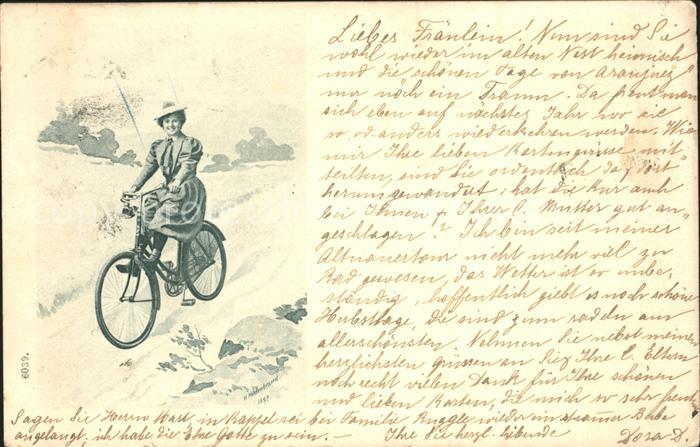 Liebes Fräulein! Nun sind Sie
wohl wieder im alten Nest heimisch
und die schönen Tage von Aranjuez
nur noch ein Traum. Da freut man
sich eben auf nächstes Jahr wo sie
so od. anders wiederkehren werden. Wie
mir Ihre lieben Kartengrüsse mit-
teilten, sind Sie ordentlich da & dort
herumgewandert; hat die Kur auch
bei Ihnen & Ihrer l. Mutter gut an-
geschlagen? Ich bin seit meiner
Altnauertour nicht mehr viel zu
Rad gewesen, das Wetter ist so unbe-
ständig, hoffentlich giebt es noch schöne
Herbsttage, die sind zum radeln am
allerschönsten. Nehmen Sie nebst meinen
herzlichsten Grüssen an Sie & Ihre l. Eltern
noch recht vielen Dank für Ihre schönen
und lieben Karten, die mich so sehr freuten
Sagen Sie Herrn Mast, in Kappel sei bei Familie Ruggle wieder ein strammer Bube
angelangt, ich habe die Ehre Gotte zu sein. — Ihre Sie herzl. liebende Dora D.
6039.
1897